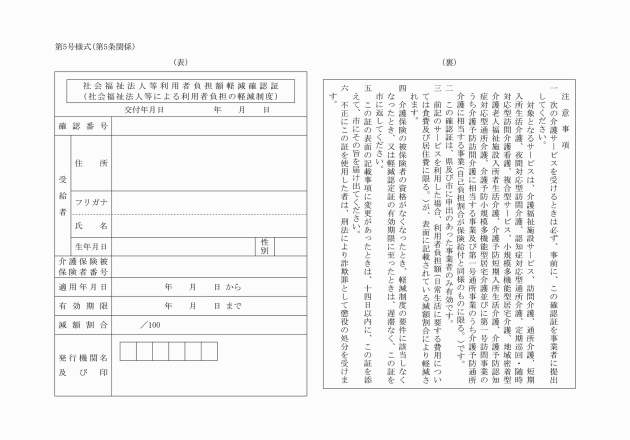 第5号様式(第5条関係)
(表)
社会福祉法人等利用者負担額軽減確認証
(社会福祉法人等による利用者負担の軽減制度)
交付年月日 年 月 日
確認番号
受給者
住所
フリガナ
氏名
生年月日
性別
介護保険被
保険者番号
適用年月日 年 月 日 から
有効期限 年 月 日 まで
減額割合 /100
発行機関名
及び印
(裏)
注意事項
一 次の介護サービスを受けるときは必ず、事前に、この確認証を事業者に提出
してください。
対象となるサービスは、介護福祉施設サービス、訪問介護、通所介護、短期
入所生活介護、夜間対応型訪問介護、認知症対応型通所介護、定期巡回・随時
対応型訪問介護看護、複合型サービス、小規模多機能型居宅介護、地域密着型
介護老人福祉施設入所者生活介護、介護予防短期入所生活介護、介護予防認知
症対応型通所介護、介護予防小規模多機能型居宅介護並びに第一号訪問事業の
うち介護予防訪問介護に相当する事業及び第一号通所事業のうち介護予防通所
介護に相当する事業(自己負担割合が保険給付と同様のものに限る。)です。
二 この確認証は、県及び市に申出のあった事業者のみ有効です。
三 前記のサービスを利用した場合、利用者負担額(日常生活に要する費用につい
ては食費及び居住費に限る。)が、表面に記載されている減額割合により軽減さ
れます。
四 介護保険の被保険者の資格がなくなったとき、軽減制度の要件に該当しなく
なったとき、又は軽減認定証の有効期限に至ったときは、遅滞なく、この証を
市に返してください。
五 この証の表面の記載事項に変更があったときは、十四日以内に、この証を添
えて、市にその旨を届け出てください。
六 不正にこの証を使用した者は、刑法により詐欺罪として懲役の処分を受けま
す。